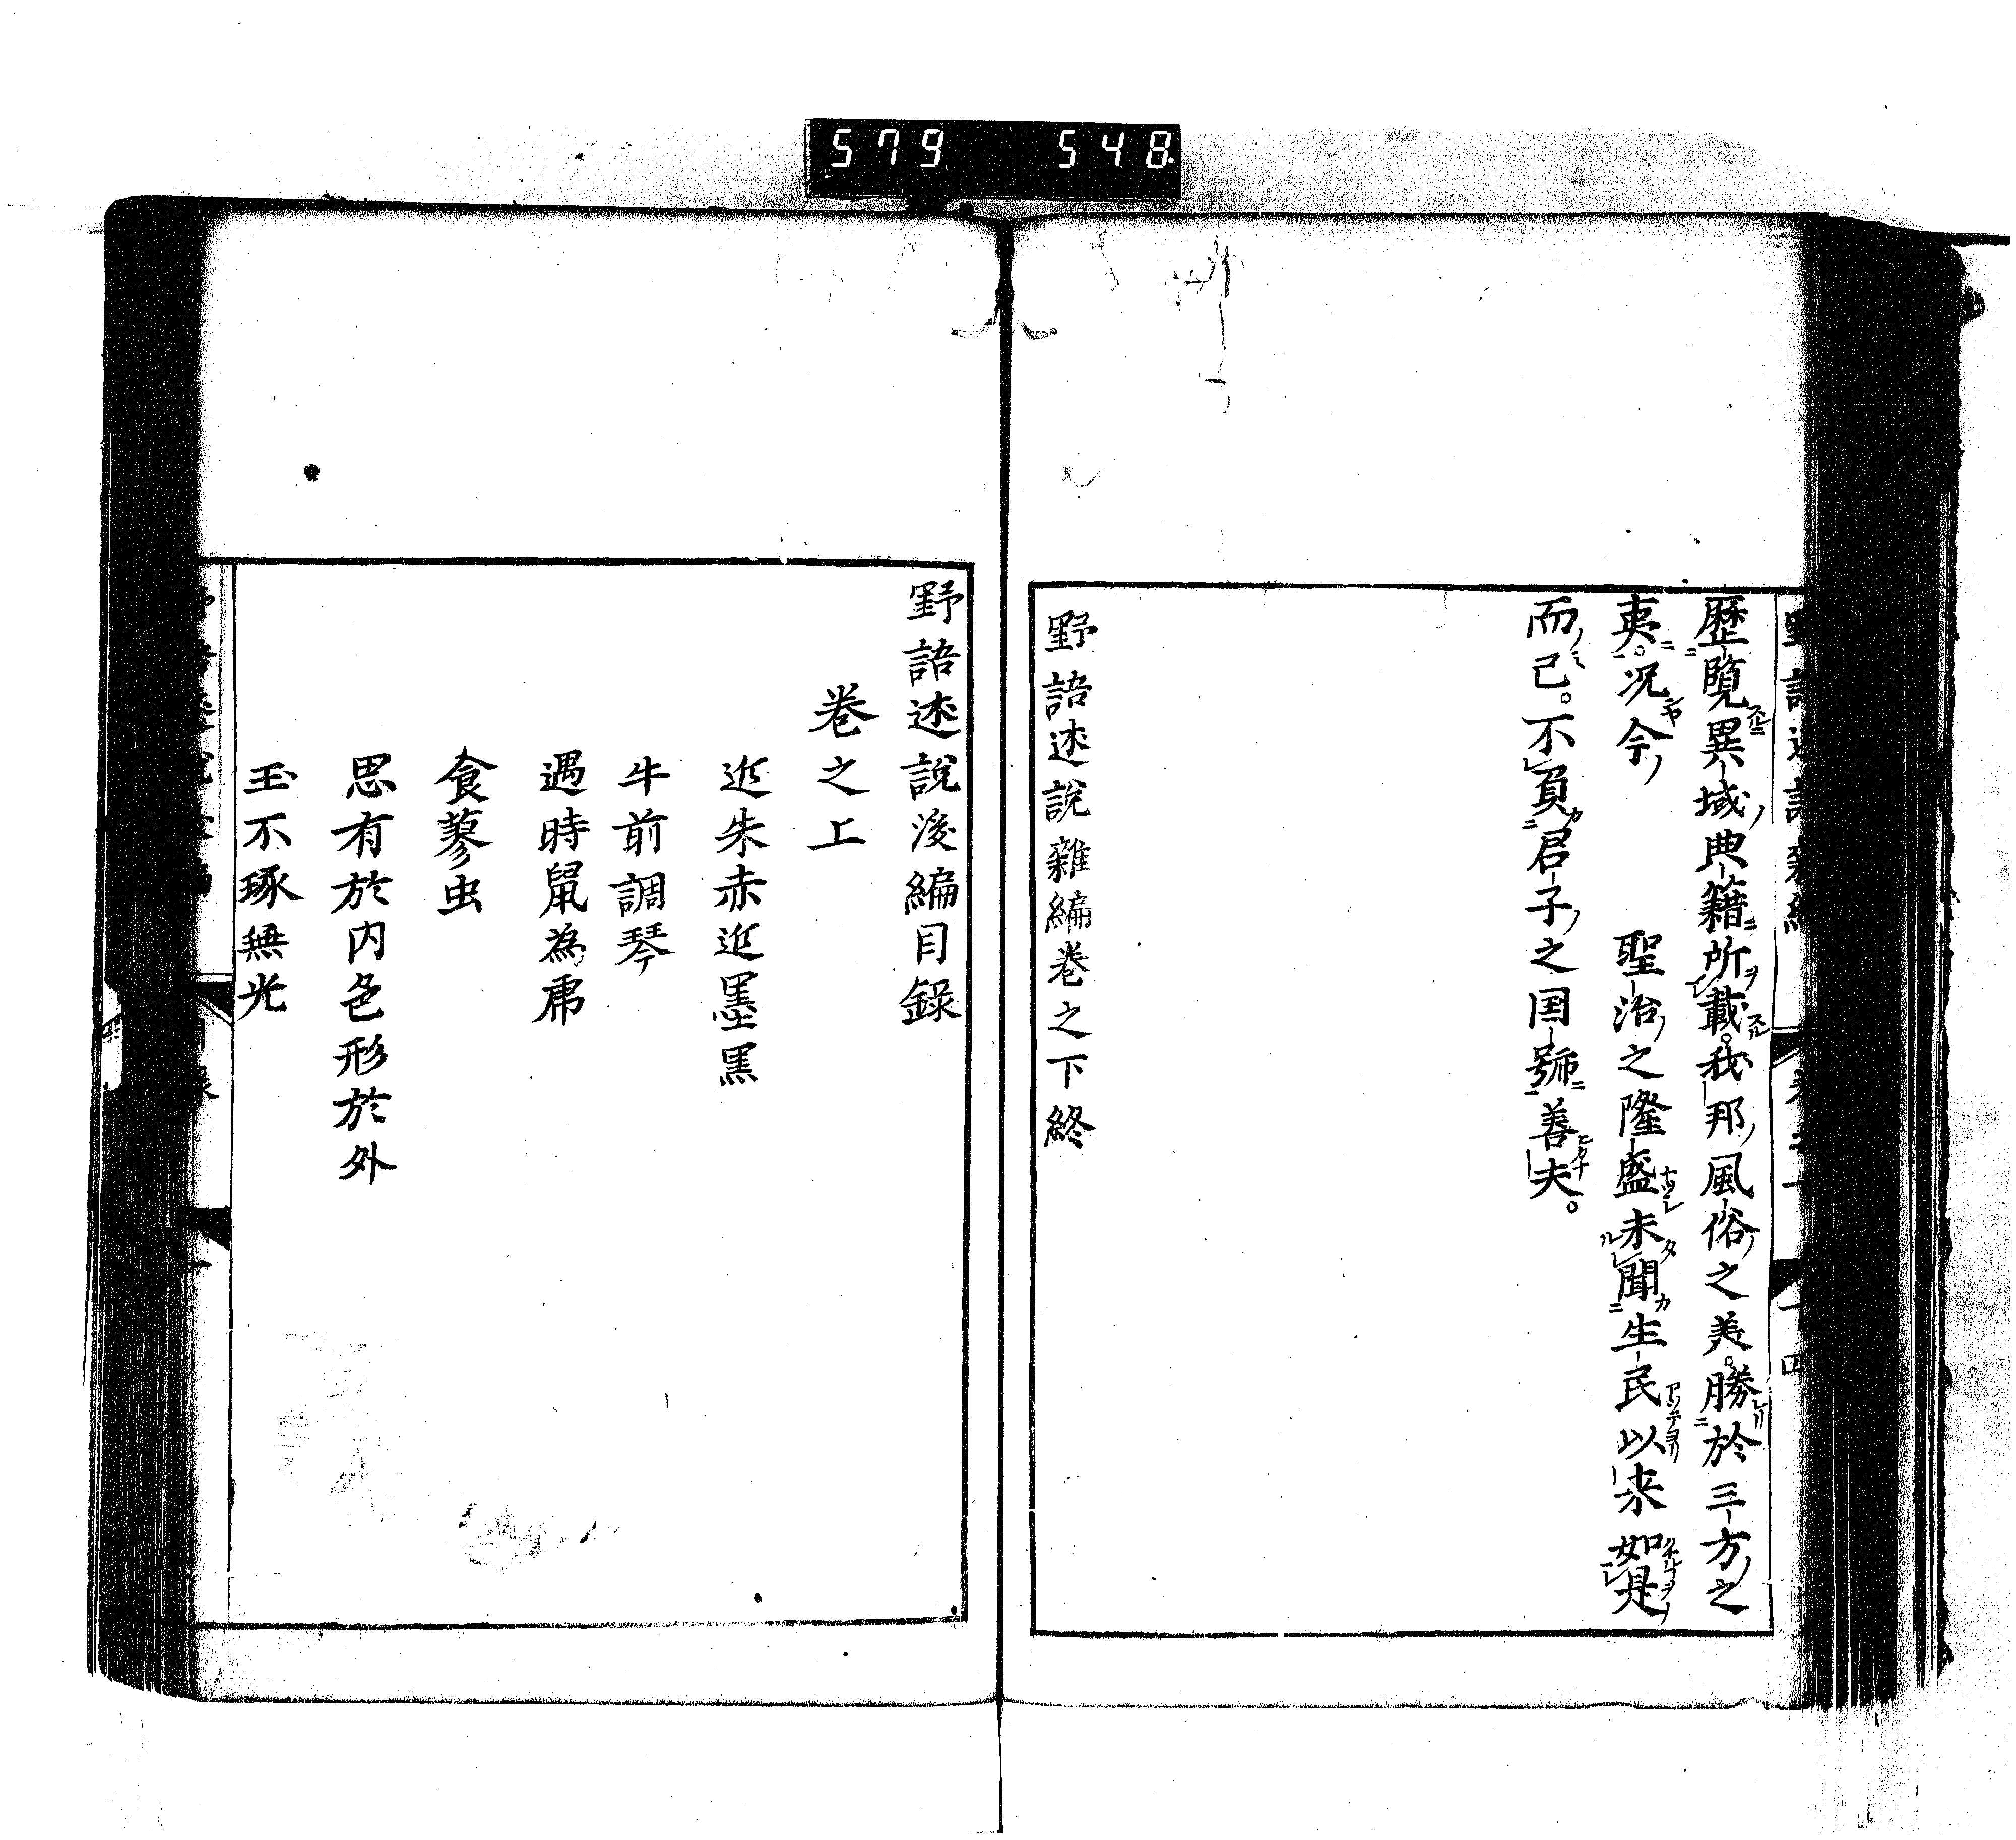 579 548
歷覧異域典籍所載。我邦風俗之美。勝於三方之
夷。况今 聖治之隆盛未聞生民以来如是
而已。不負君子之国號善夫。
野語述説雜編巻之下終
野語述說後編目錄
巻之上
近朱赤近墨黒
牛前調琴
遇時鼠為虎
食蓼虫
思有於内色形於外
玉不琢無光